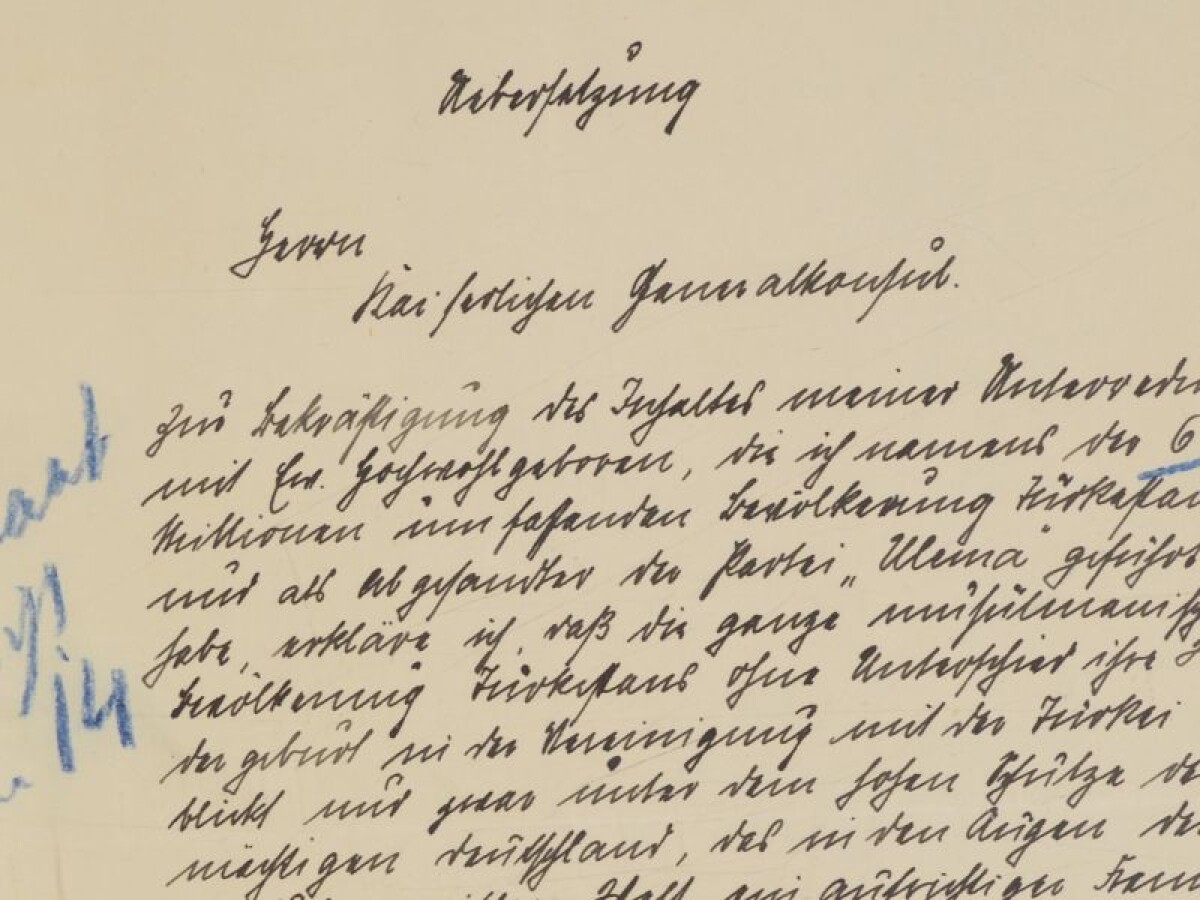 Uebersetzung
Herrn
Kaiserlichen Generalkonsul.
Zur Bekräftigung des Inhaltes meiner Unterredu
mit Ew. Hochwohlgeboren, die ich namens der 6
Millionen umfassenden Bevölkerung Turkestan
und als Abgesandter der Partei „Ulema" geführt
habe, erkläre ich, daß die ganze muselmanisch
Bevölkerung Turkestans ohne Unterschied ihre
dergeburt in der Vereinigung mit der Türkei
blickt und zwar unter dem hohen Schutze de
mächtigen Deutschland, das in den Augen de
ein aufrichtiger
14